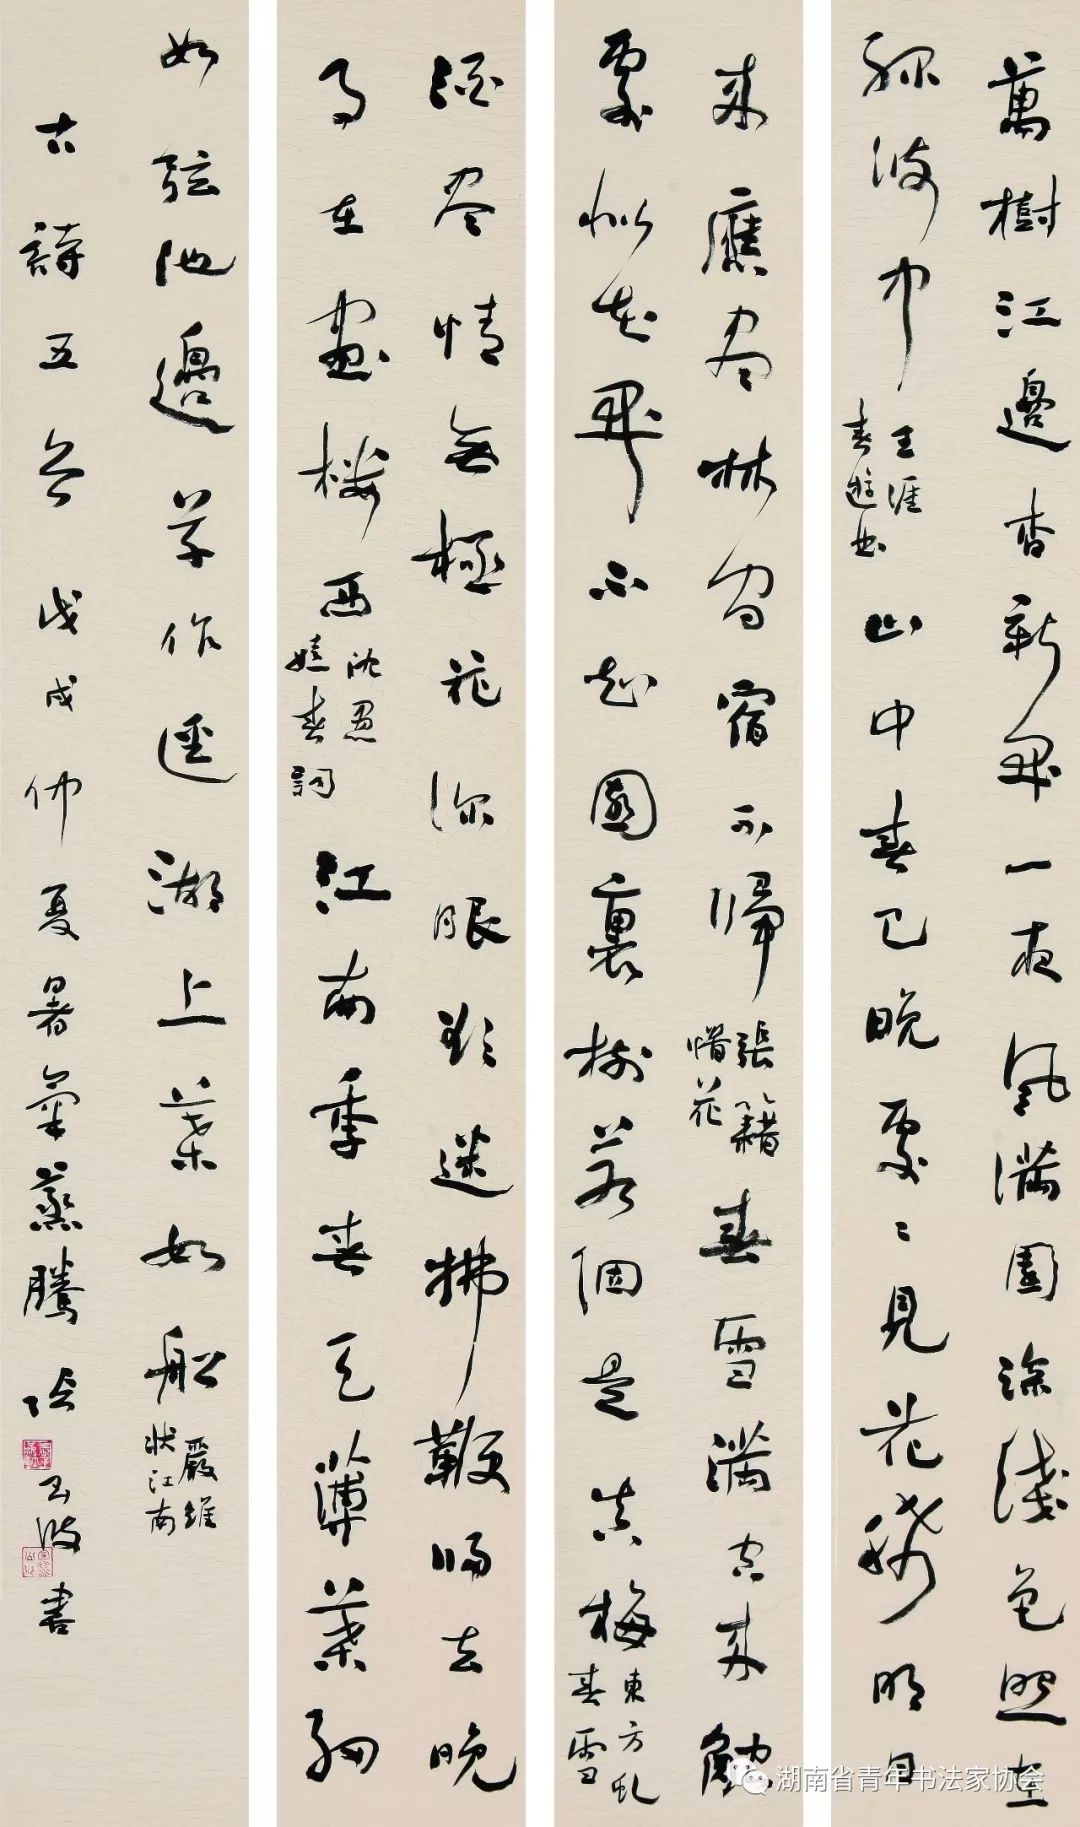 萬樹江邊杏新開一夜風滿園深淺色照在
綠波中
王涯
春遊曲
山中春已晚處〻見花稀明日
来應盡林間宿不歸
張籍
惜花
春雪滿空来觸
處似花開不知園裏樹若個是真梅
東方虬
春雪
酒盡情無極花深眼欲迷拂鞭歸去晚
月在畫樓西
沈愚
嬉春詞
江南季春天蓴葉細
如弦池邊草作徑湖上葉如船
嚴維
狀江南
古詩五首戊戌仲夏暑氣蒸騰張玉波書
湖南省青年书法家协会